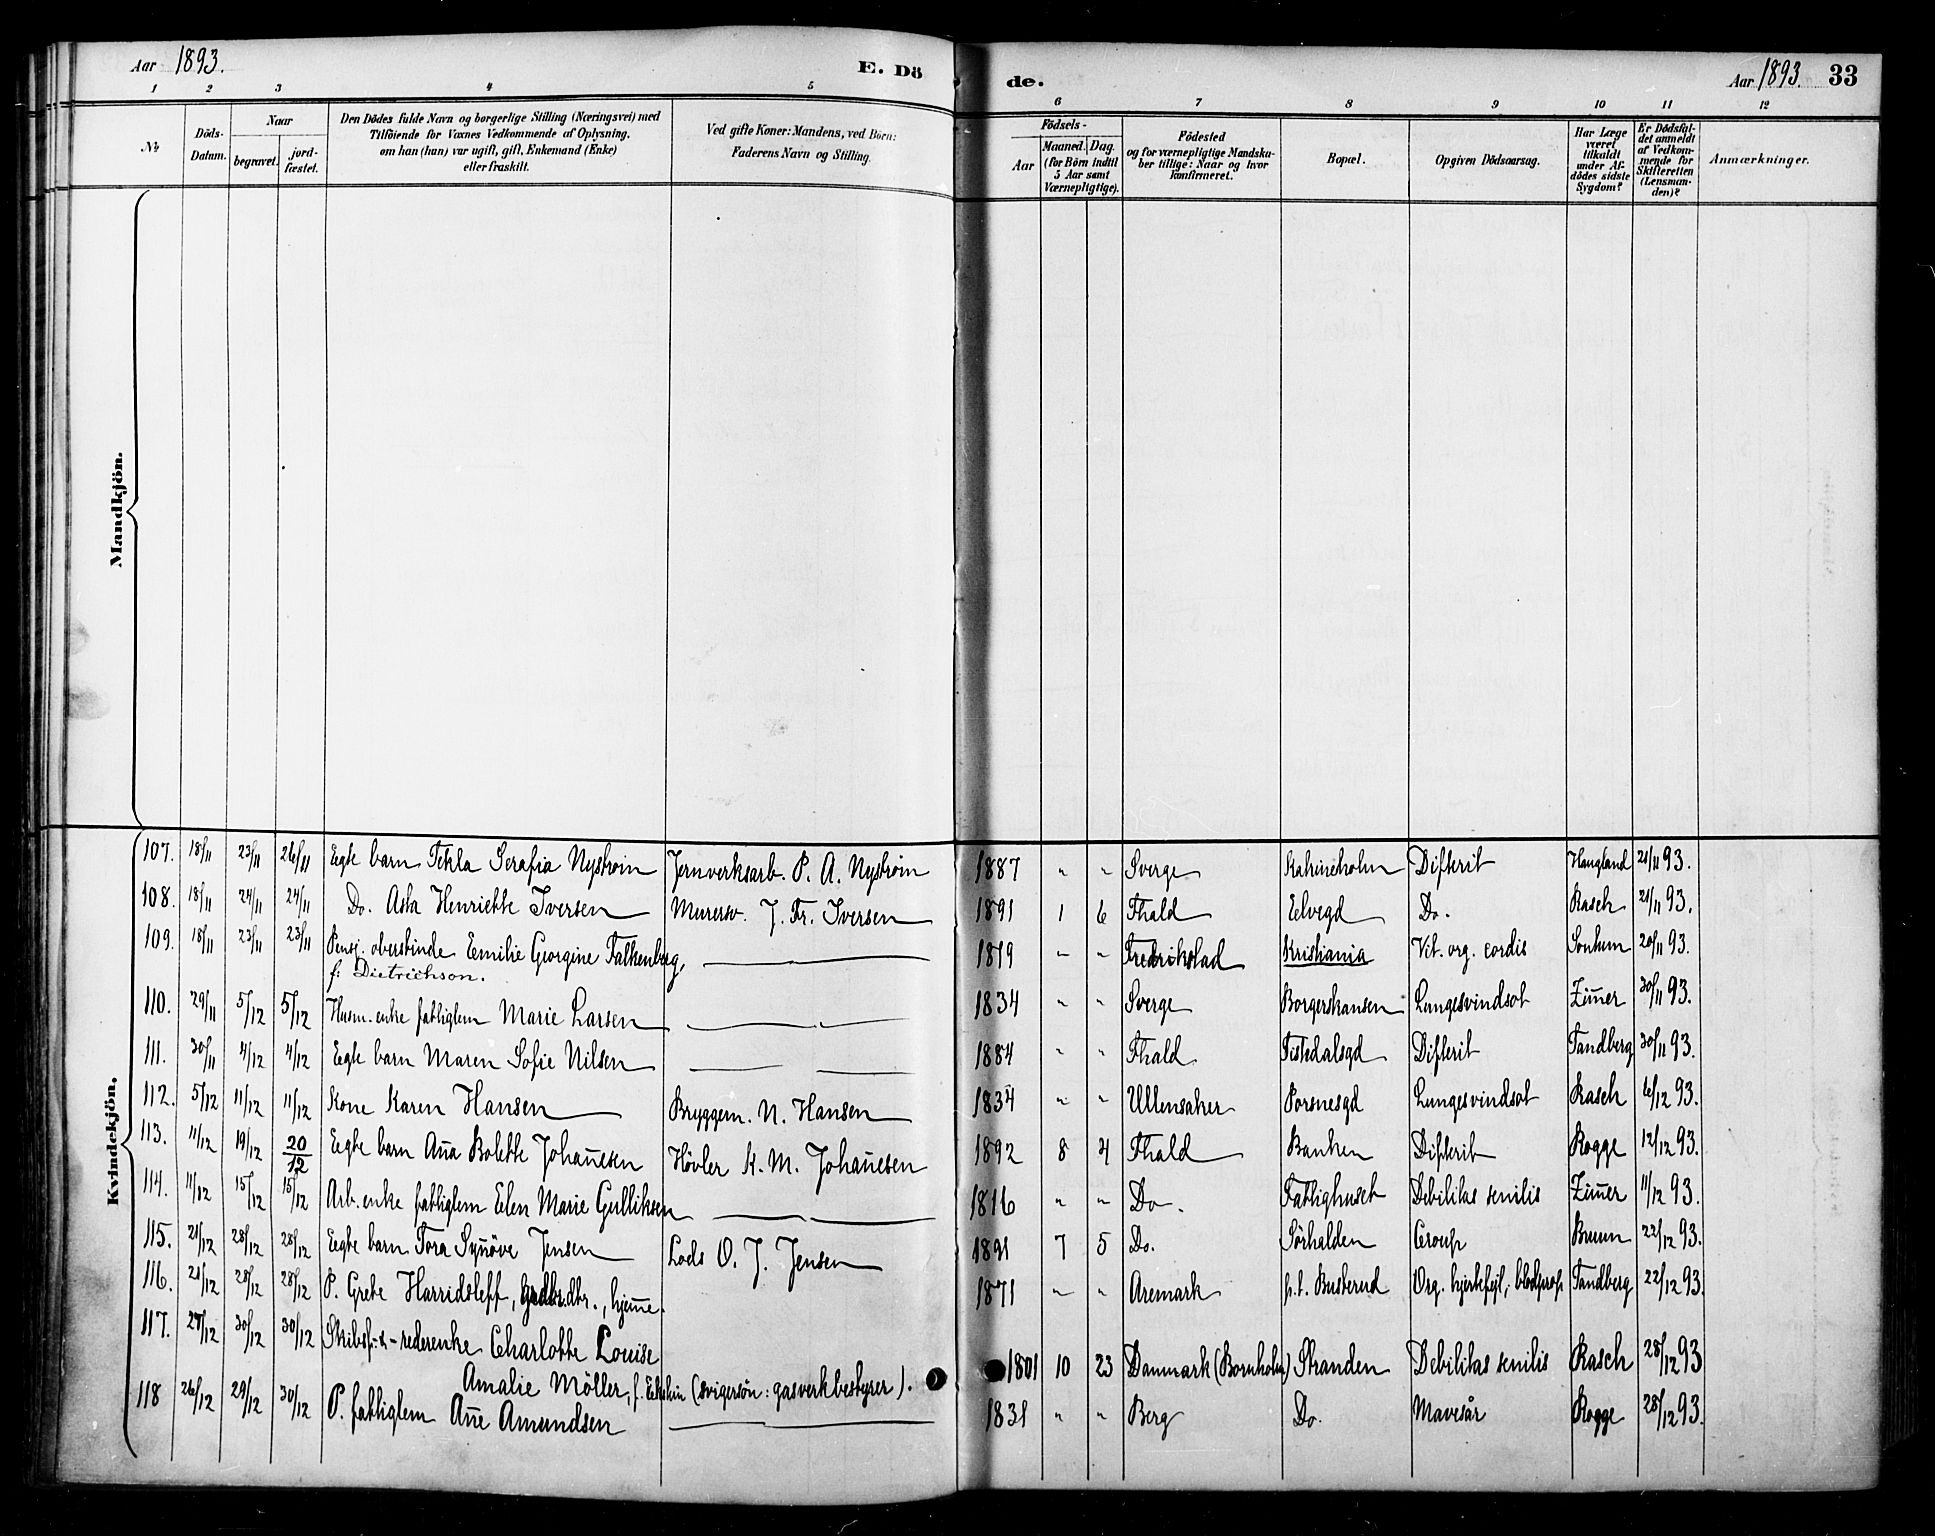 Aar 1893.
E. Dö
de.
Aar 1893. 33
1 2 3 4 5 6 7 8 9 10 11 12
№
Döds-Datum.
Naar
begravet.
jord-fæstet.
Den Dödes fulde Navn og borgerlige Stilling (Næringsvei) med
Tilföiende for Voxnes Vedkommende af Oplysning,
om han (hun) var ugift, gift, Enkemand (Enke)
eller fraskilt.
Ved gifte Koner: Mandens, ved Börn:
Faderens Navn og Stilling.
Födsels-
Aar
Maaned. Dag.
(for Börn indtil
5 Aar samt
Værnepligtige).
Födested
og for værnepligtige Mandska-
ber tillige: Naar og hvor
konfirmeret.
Bopæl.
Opgiven Dödsaarsag.
Har Læge
været
tilkaldt
under Af-
dödes sidste
Sygdom?
Er Dödsfal-
det anmeldt
af Vedkom-
mende for
Skifteretten
(Lensman-
den)?
Anmærkninger.
Mandkjön.
Kvindekjön.
107. 18/11 23/11 26/11 Egte barn Tekla Serafia Nyström Jernverksarb. P. A. Nyström 1887 " " Sverge Katrineholm Difterit Haugland 21/11 93.
108. 18/11 24/11 24/11 Do. Asta Henriette Iversen Murersv. J. Fr. Iversen 1891 1 6 Fhald Elvegd Do. Rasch 21/11 93.
109. 18/11 23/11 23/11 Pensj. oberstinde Emilie Georgine Falkenberg, 1819 " " Fredrikstad Kristiania Vit. org. cordis Sontum 20/11 93.
f. Dietrichson.
110. 29/11 5/12 5/12 Husm. enke fattiglem Marie Larsen 1834 " " Sverge Borgerskansen Lungesvindsot Zim̅er 30/11 93.
111. 30/11 4/12 4/12 Egte barn Maren Sofie Nilsen 1884 " " Fhald Tistedalsgd Difterit Tandberg 30/11 93.
112. 5/12 11/12 11/12 Kone Karen Hansen Bryggem. N. Hansen 1834 " " Ullensaker Porsnesgd Lungesvindsot Rasch 6/12 93.
113. 11/12 19/12 20/12 Egte barn An̅a Bolette Johan̅esen Hövler K. M. Johan̅esen 1892 8 4 Fhald Banken Difterit Rogge 12/12 93.
114. 11/12 15/12 15/12 Arb. enke fattiglem Elen Marie Gulliksen 1816 " " Do. Fattighuset Debilitas senilis Zim̅er 11/12 93.
115. 21/12 28/12 28/12 Egte barn Tora Syn̅öve Jensen Lods O. J. Jensen 1891 7 5 Do. Sörhalden Croup Bruun 22/12 93.
116. 21/12 28/12 28/12 P. Grete Harridsleff, grdbr.dtr., hjem̅e. 1871 " " Aremark p.t. Busterud Org. hjertefejl, Tandberg 22/12 93.
117. 27/12 30/12 30/12 Skibsf.- & -rederenke Charlotte Louise
Amalie Möller, f. (svigersön: gasverkbestyrer). 1801 10 23 Danmark (Bornholm) Stranden Debilitas senilis Rasch 28/12 93
118 26/12 29/12 30/12 P. fattiglem An̅e Amundsen 1831 " " Berg Do. Mavesår Rogge 28/12 93.